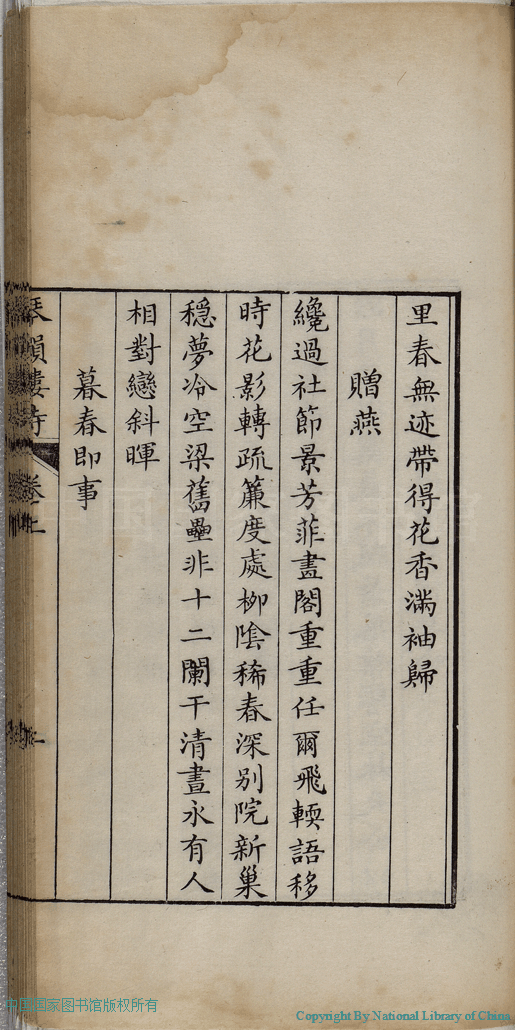 里春無迹帶得花香滿袖歸
贈燕
纔過社節景芳菲畫閣重重任爾飛輭語移
時花影轉疏簾度處栁陰稀春深别院新巢
穩夢冷空梁舊壘非十二闌干清晝永有人
相對戀斜暉
暮春即事
琴韻樓詩 卷上
中国国家图书馆版权所有
Copyright By National Library of China